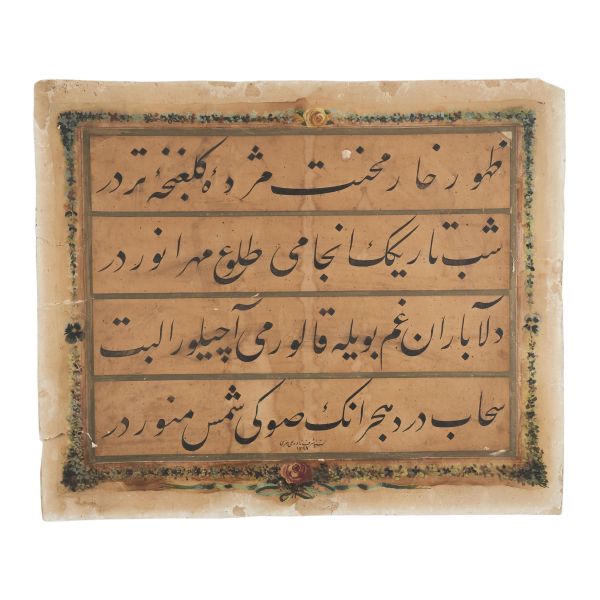 ظهور خار محنت مژدهٔ گلغنچهٔ تردر
شب تاریك انجامی طلوع مهر انوردر
دلا باران غم بویله قالورمی آچیلور البت
سحاب درد هجرانك صوكی شمس منوردر